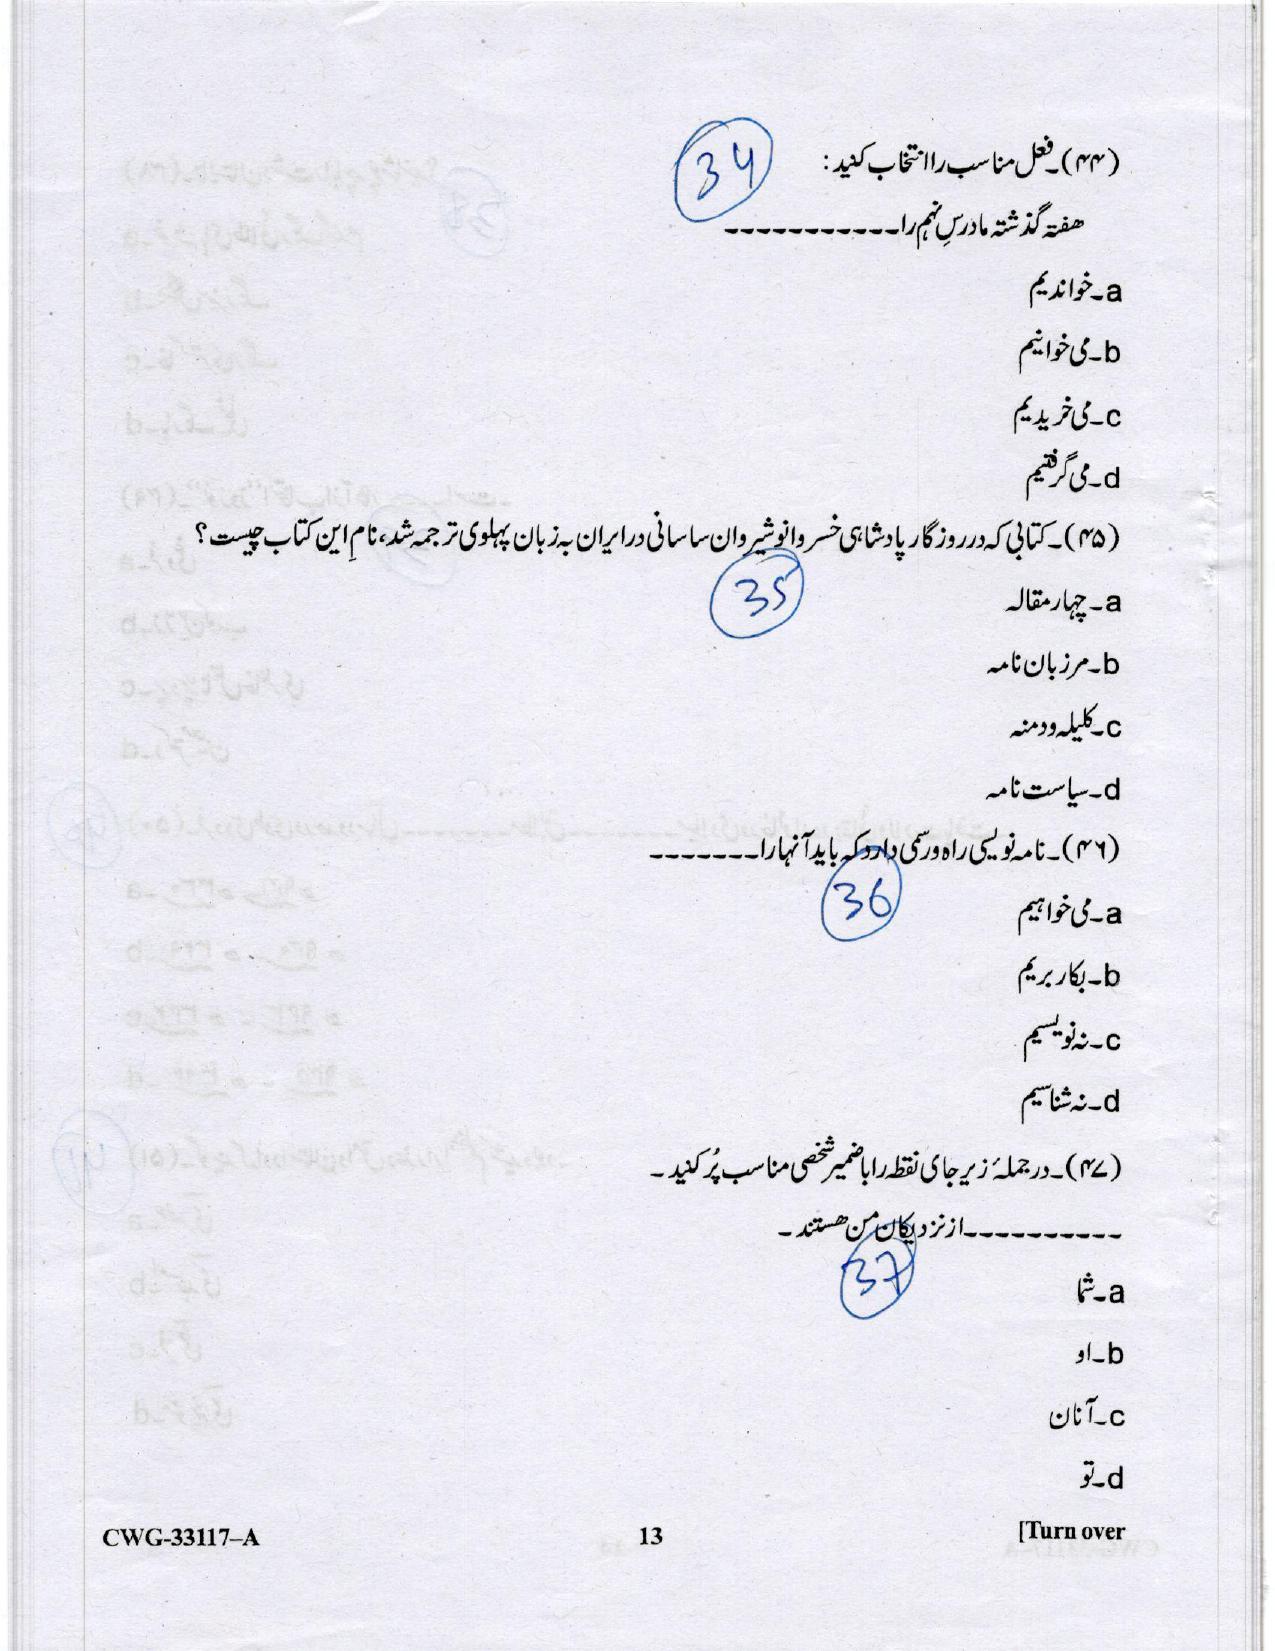 (۴۴)۔ فعل مناسب را انتخاب کنید:
34
هفتہ گذشتہ ما درسِ نہم را-----------
a۔ خواندیم
b۔ می خوانیم
c۔ می خریدیم
d۔ می گرفتیم
(۴۵)۔ کتابی کہ در روزگار پادشاہی خسرو انوشیروان ساسانی در ایران بہ زبان پہلوی ترجمہ شد، نامِ این کتاب چیست؟
35
a۔ چہار مقالہ
b۔ مرزبان نامہ
c۔ کلیلہ و دمنہ
d۔ سیاست نامہ
(۴۶)۔ نامہ نویسی راہ و رسمی دارد کہ باید آنہا را-------
36
a۔ می خواہیم
b۔ بکار بریم
c۔ نہ نویسیم
d۔ نہ شناسیم
(۴۷)۔ در جملۂ زیر جای نقطہ را با ضمیر شخصی مناسب پُر کنید۔
----------از نزدیکان من هستند۔
37
a۔ شما
b۔ او
c۔ آنان
d۔ تو
CWG-33117–A 13 [Turn over